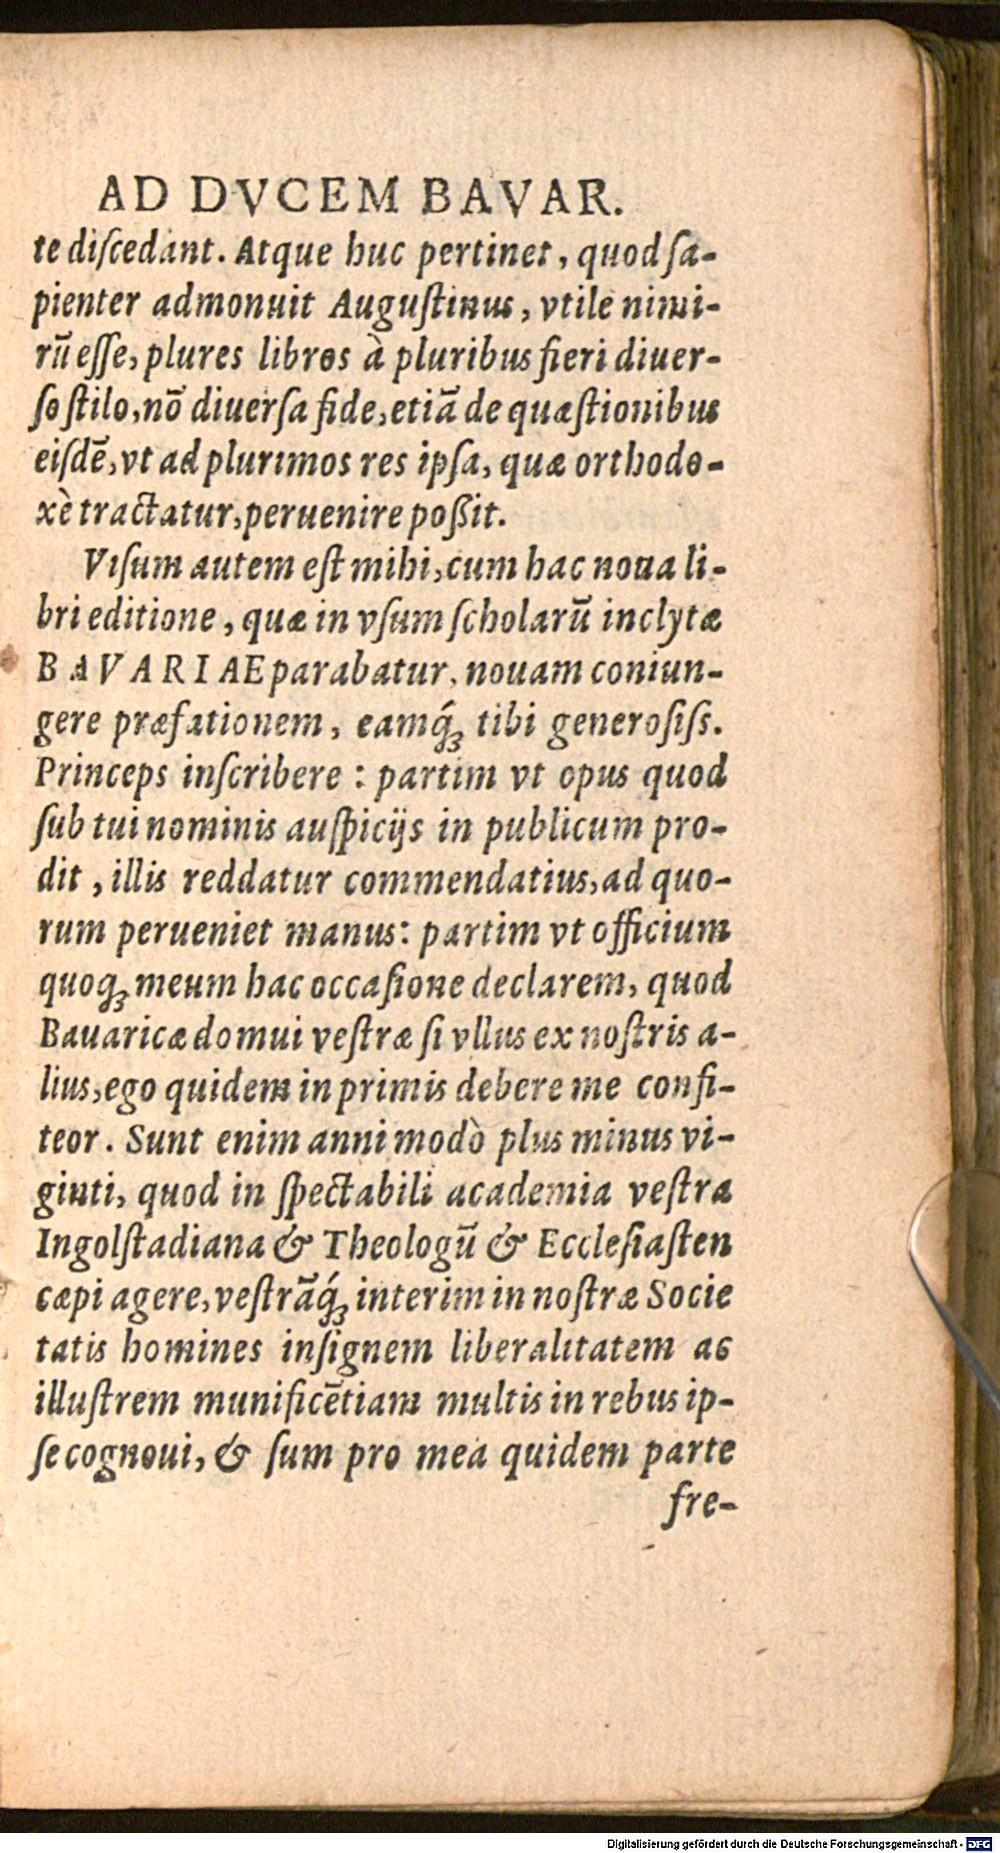 AD DVCEM BAVAR.
te diſcedant. Atque huc pertinet, quod ſa-
pienter admonuit Auguſtinus, vtile nimi-
rũ eſſe, plures libros à pluribus fieri diuer-
ſo ſtilo, nõ diuerſa fide, etiã de quæſtionibus
eiſdẽ, vt ad plurimos res ipſa, quæ orthodo-
xè tractatur, peruenire poßit.
Viſum autem eſt mihi, cum hac noua li-
bri editione, quæ in vſum ſcholarũ inclytæ
BAVARIAE parabatur, nouam coniun-
gere præfationem, eamq́ꝫ tibi generoſiſs.
Princeps inſcribere : partim vt opus quod
ſub tui nominis auſpicijs in publicum pro-
dit, illis reddatur commendatius, ad quo-
rum perueniet manus: partim vt officium
quoqꝫ meum hac occaſione declarem, quod
Bauaricæ domui veſtræ ſi vllus ex noſtris a-
lius, ego quidem in primis debere me confi-
teor. Sunt enim anni modò plus minus vi-
ginti, quod in ſpectabili academia veſtra
Ingolſtadiana & Theologũ & Eccleſiaſten
cæpi agere, veſtrãq́ꝫ interim in noſtræ Socie
tatis homines inſignem liberalitatem ac
illuſtrem munificẽtiam multis in rebus ip-
ſe cognoui, & ſum pro mea quidem parte
fre-
Digitalisierung gefördert durch die Deutsche Forschungsgemeinschaft - DFG